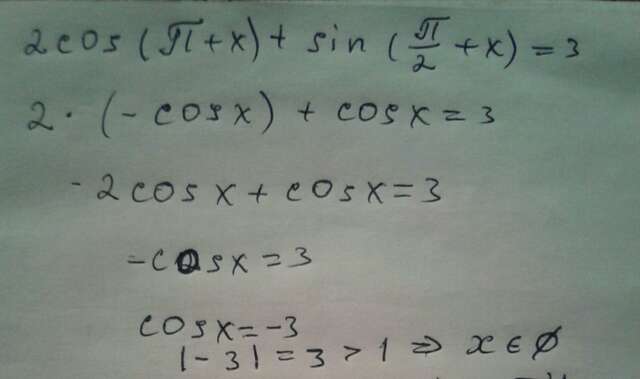 2cos(π+x)+ sin(π/2+x)=3
2·(-cosx)+cosx=3
-2cosx+cosx=3
-cosx=3
cosx=-3
|-3|=3>1 ⇒ x∈∅